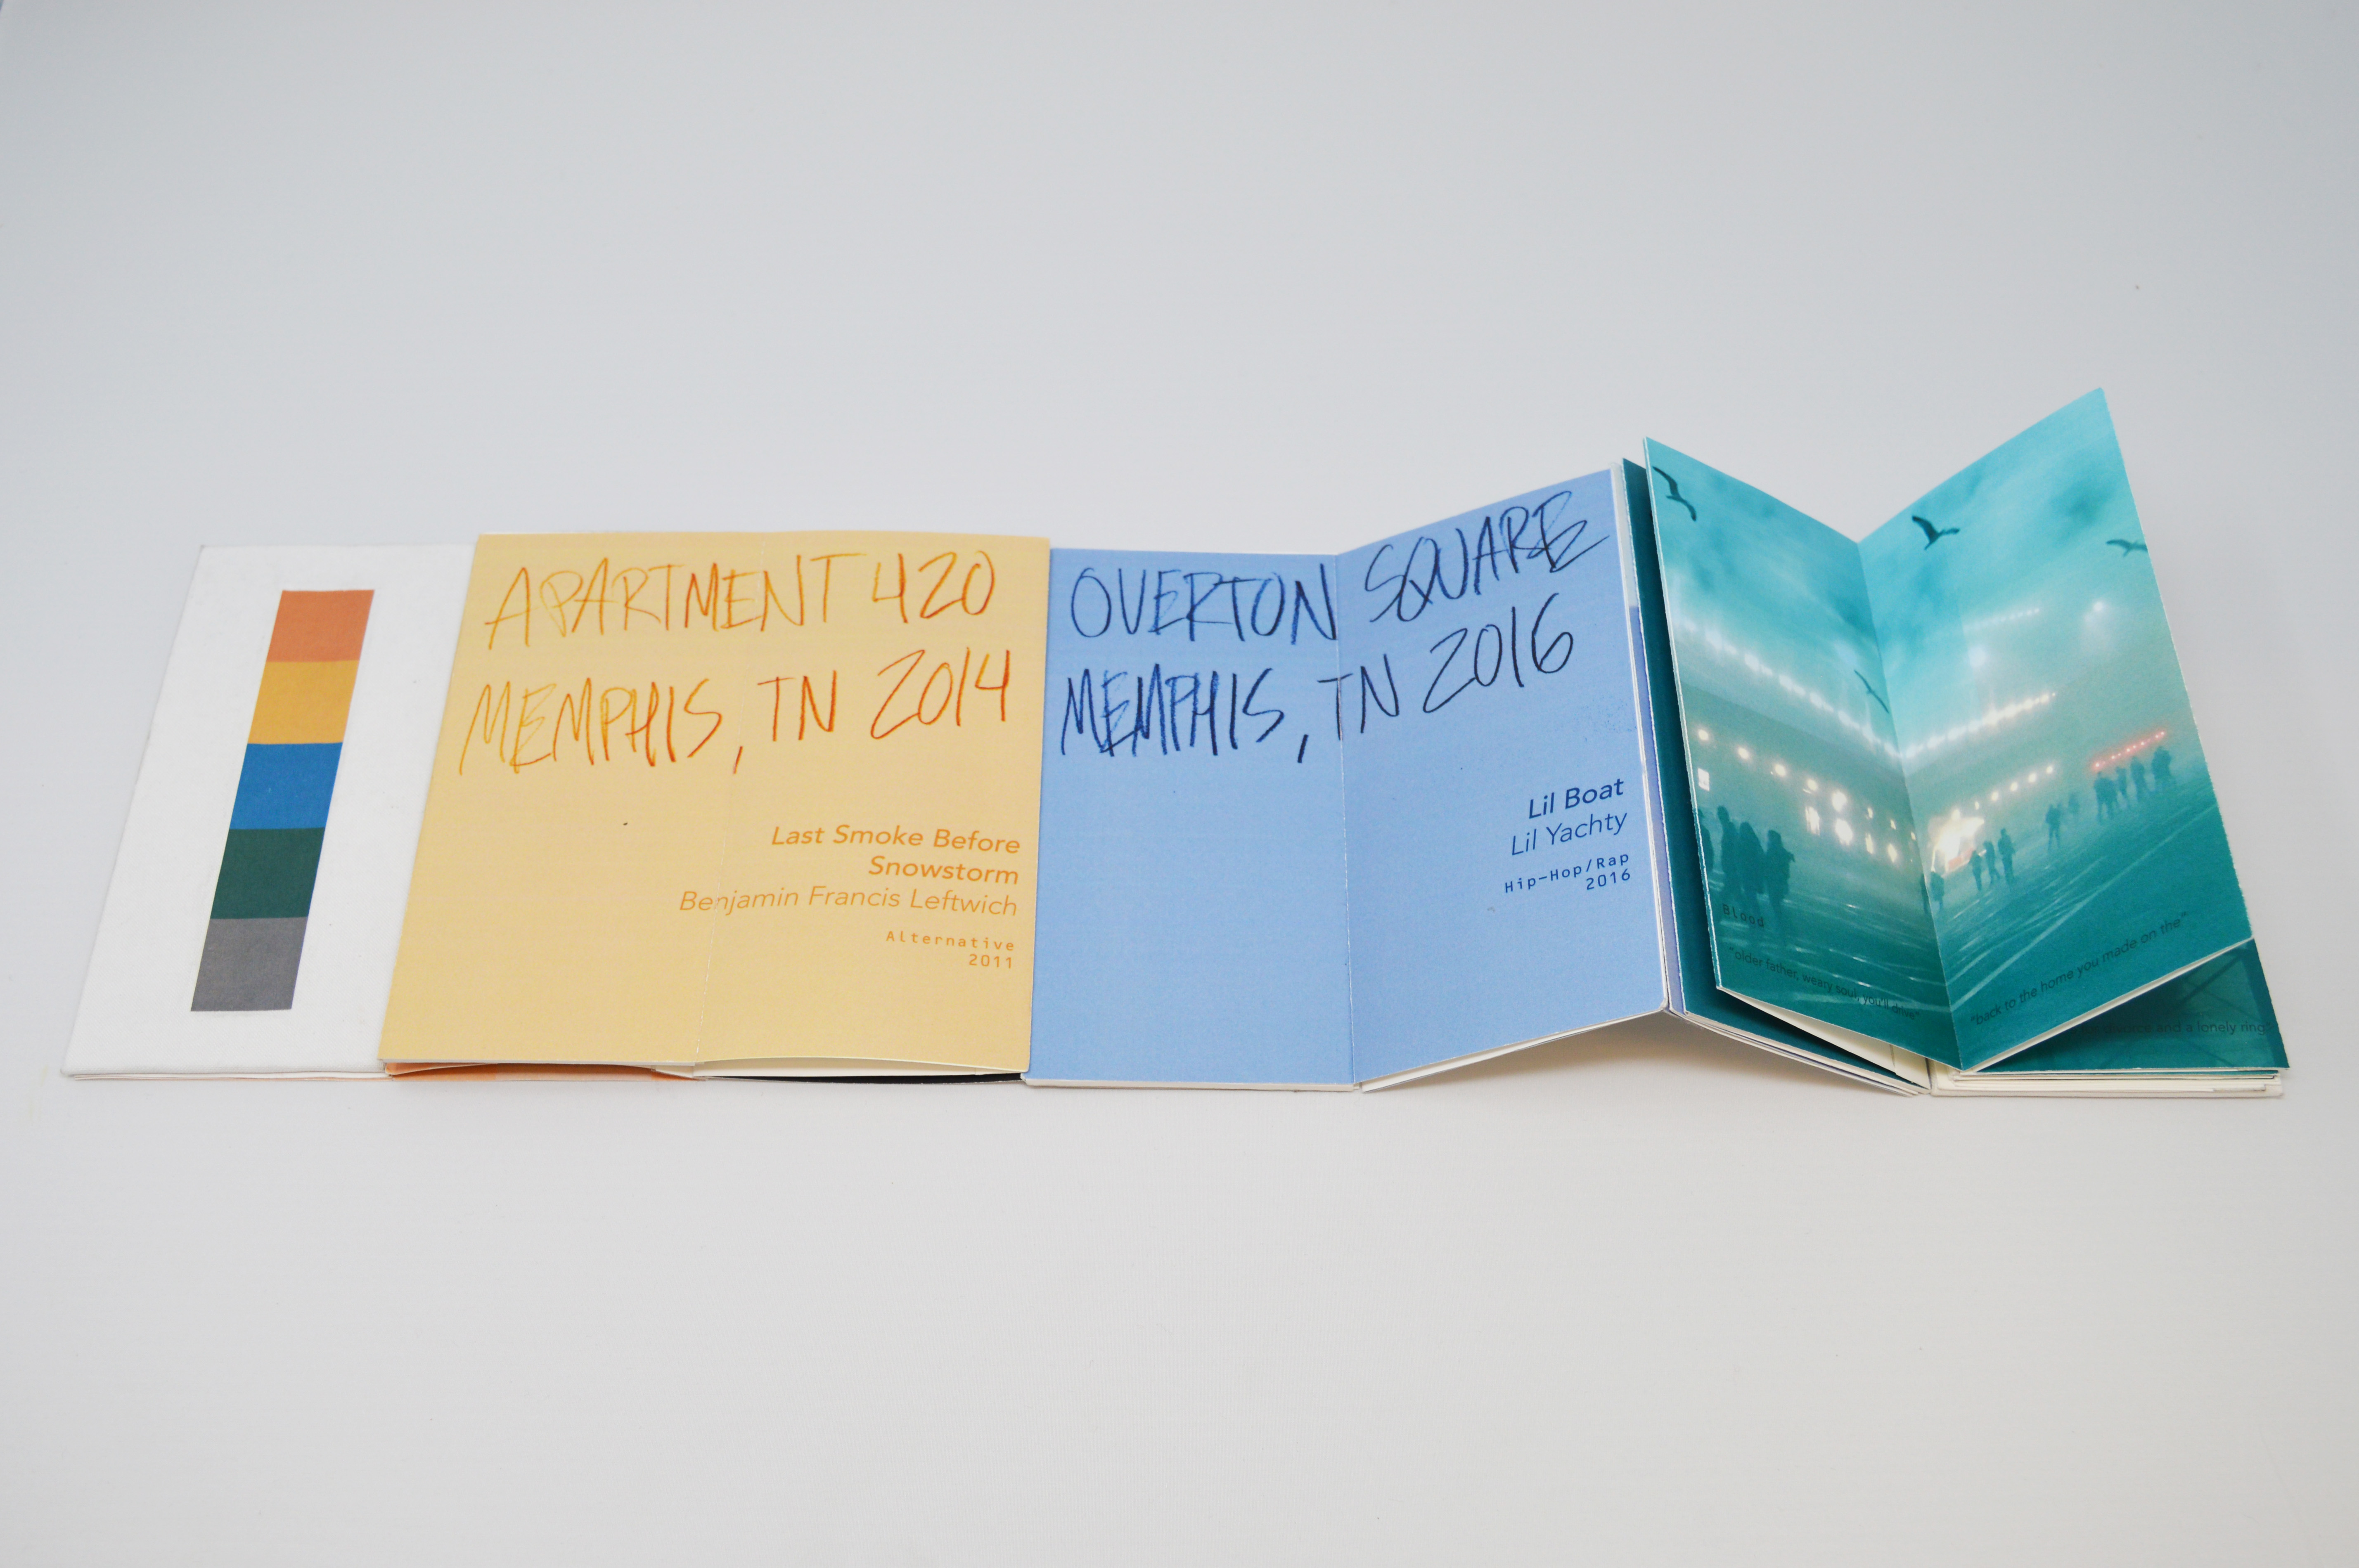 APARTMENT 420
MEMPHIS, TN 2014
Last Smoke Before
Snowstorm
Benjamin Francis Leftwich
Alternative
2011
OVERTON SQUARE
MEMPHIS, TN 2016
Lil Boat
Lil Yachty
Hip-Hop/Rap
2016
Blood
"older father, weary soul, you'll drive"
"back to the home you made on the"
and a lonely ring"